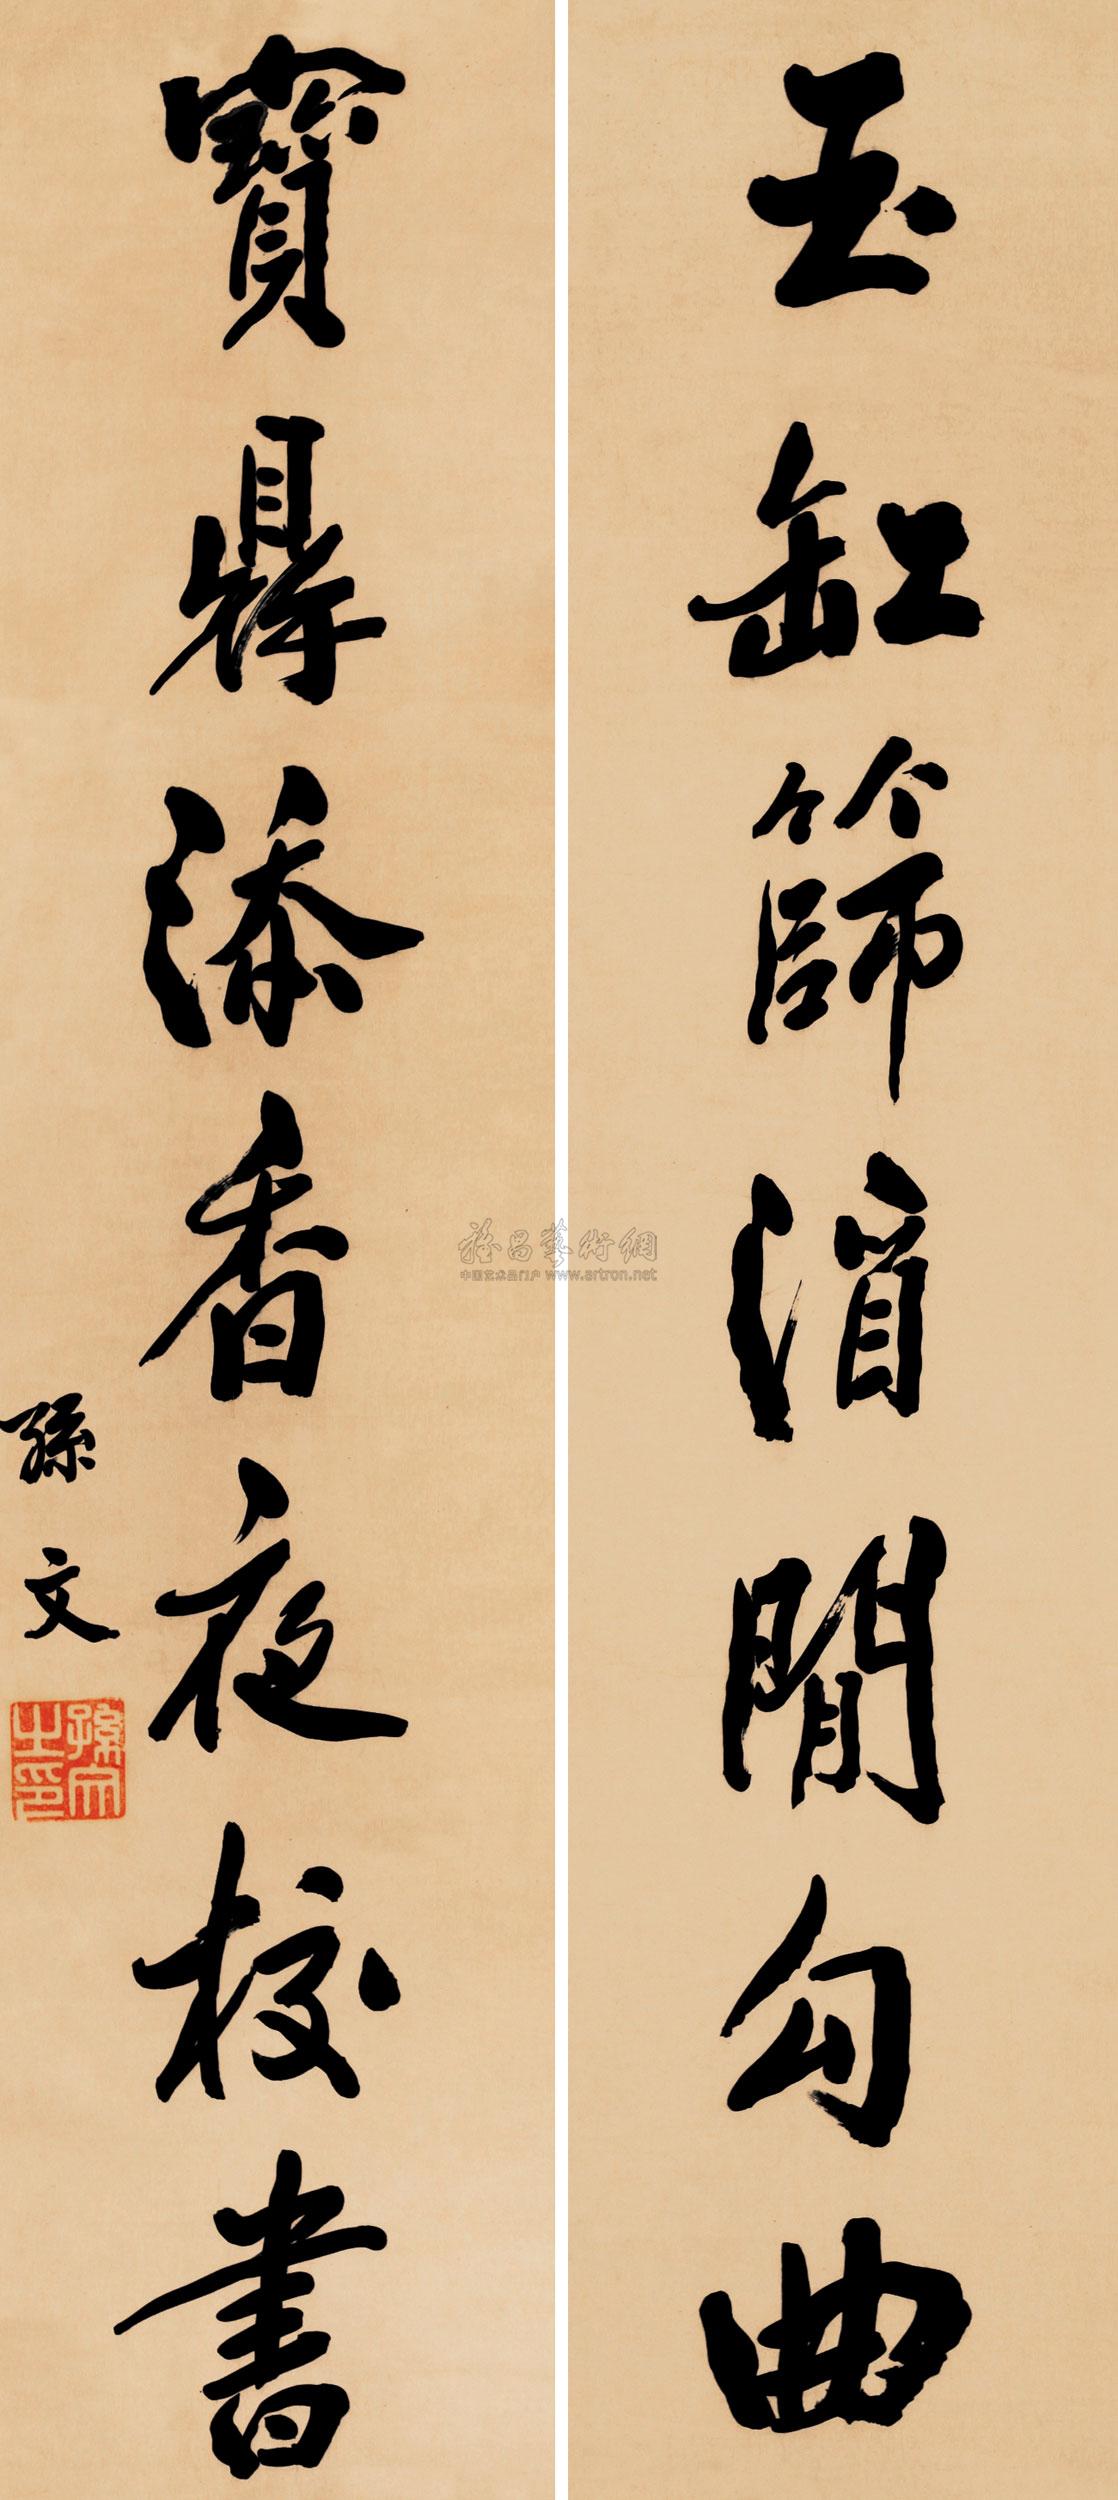 玉缸篩酒閒勾曲
寶鼎添香夜校書
孫文
孫文之印
雅昌藝術網
中国艺术品门户 www.artron.net